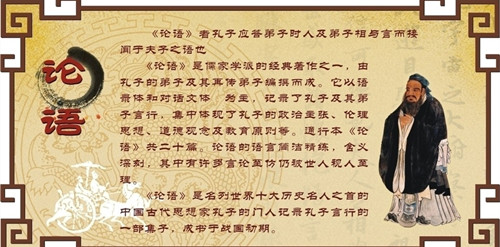 论
语
《论语》者孔子应答弟子时人及弟子相与言而接
闻于夫子之语也
《论语》是儒家学派的经典著作之一，由
孔子的弟子及其再传弟子编撰而成。它以语
录体和对话文体 为主，记录了孔子及其弟
子言行，集中体现了孔子的政治主张、伦理
思想、道德观念及教育原则等。通行本《论
语》共二十篇。论语的语言简洁精练，含义
深刻，其中有许多言论至今仍被世人视人至
理
《论语》是名列世界十大历史名人之首的
中国古代思想家孔子的门人记录孔子言行的
一部集子，成书于战国初期。